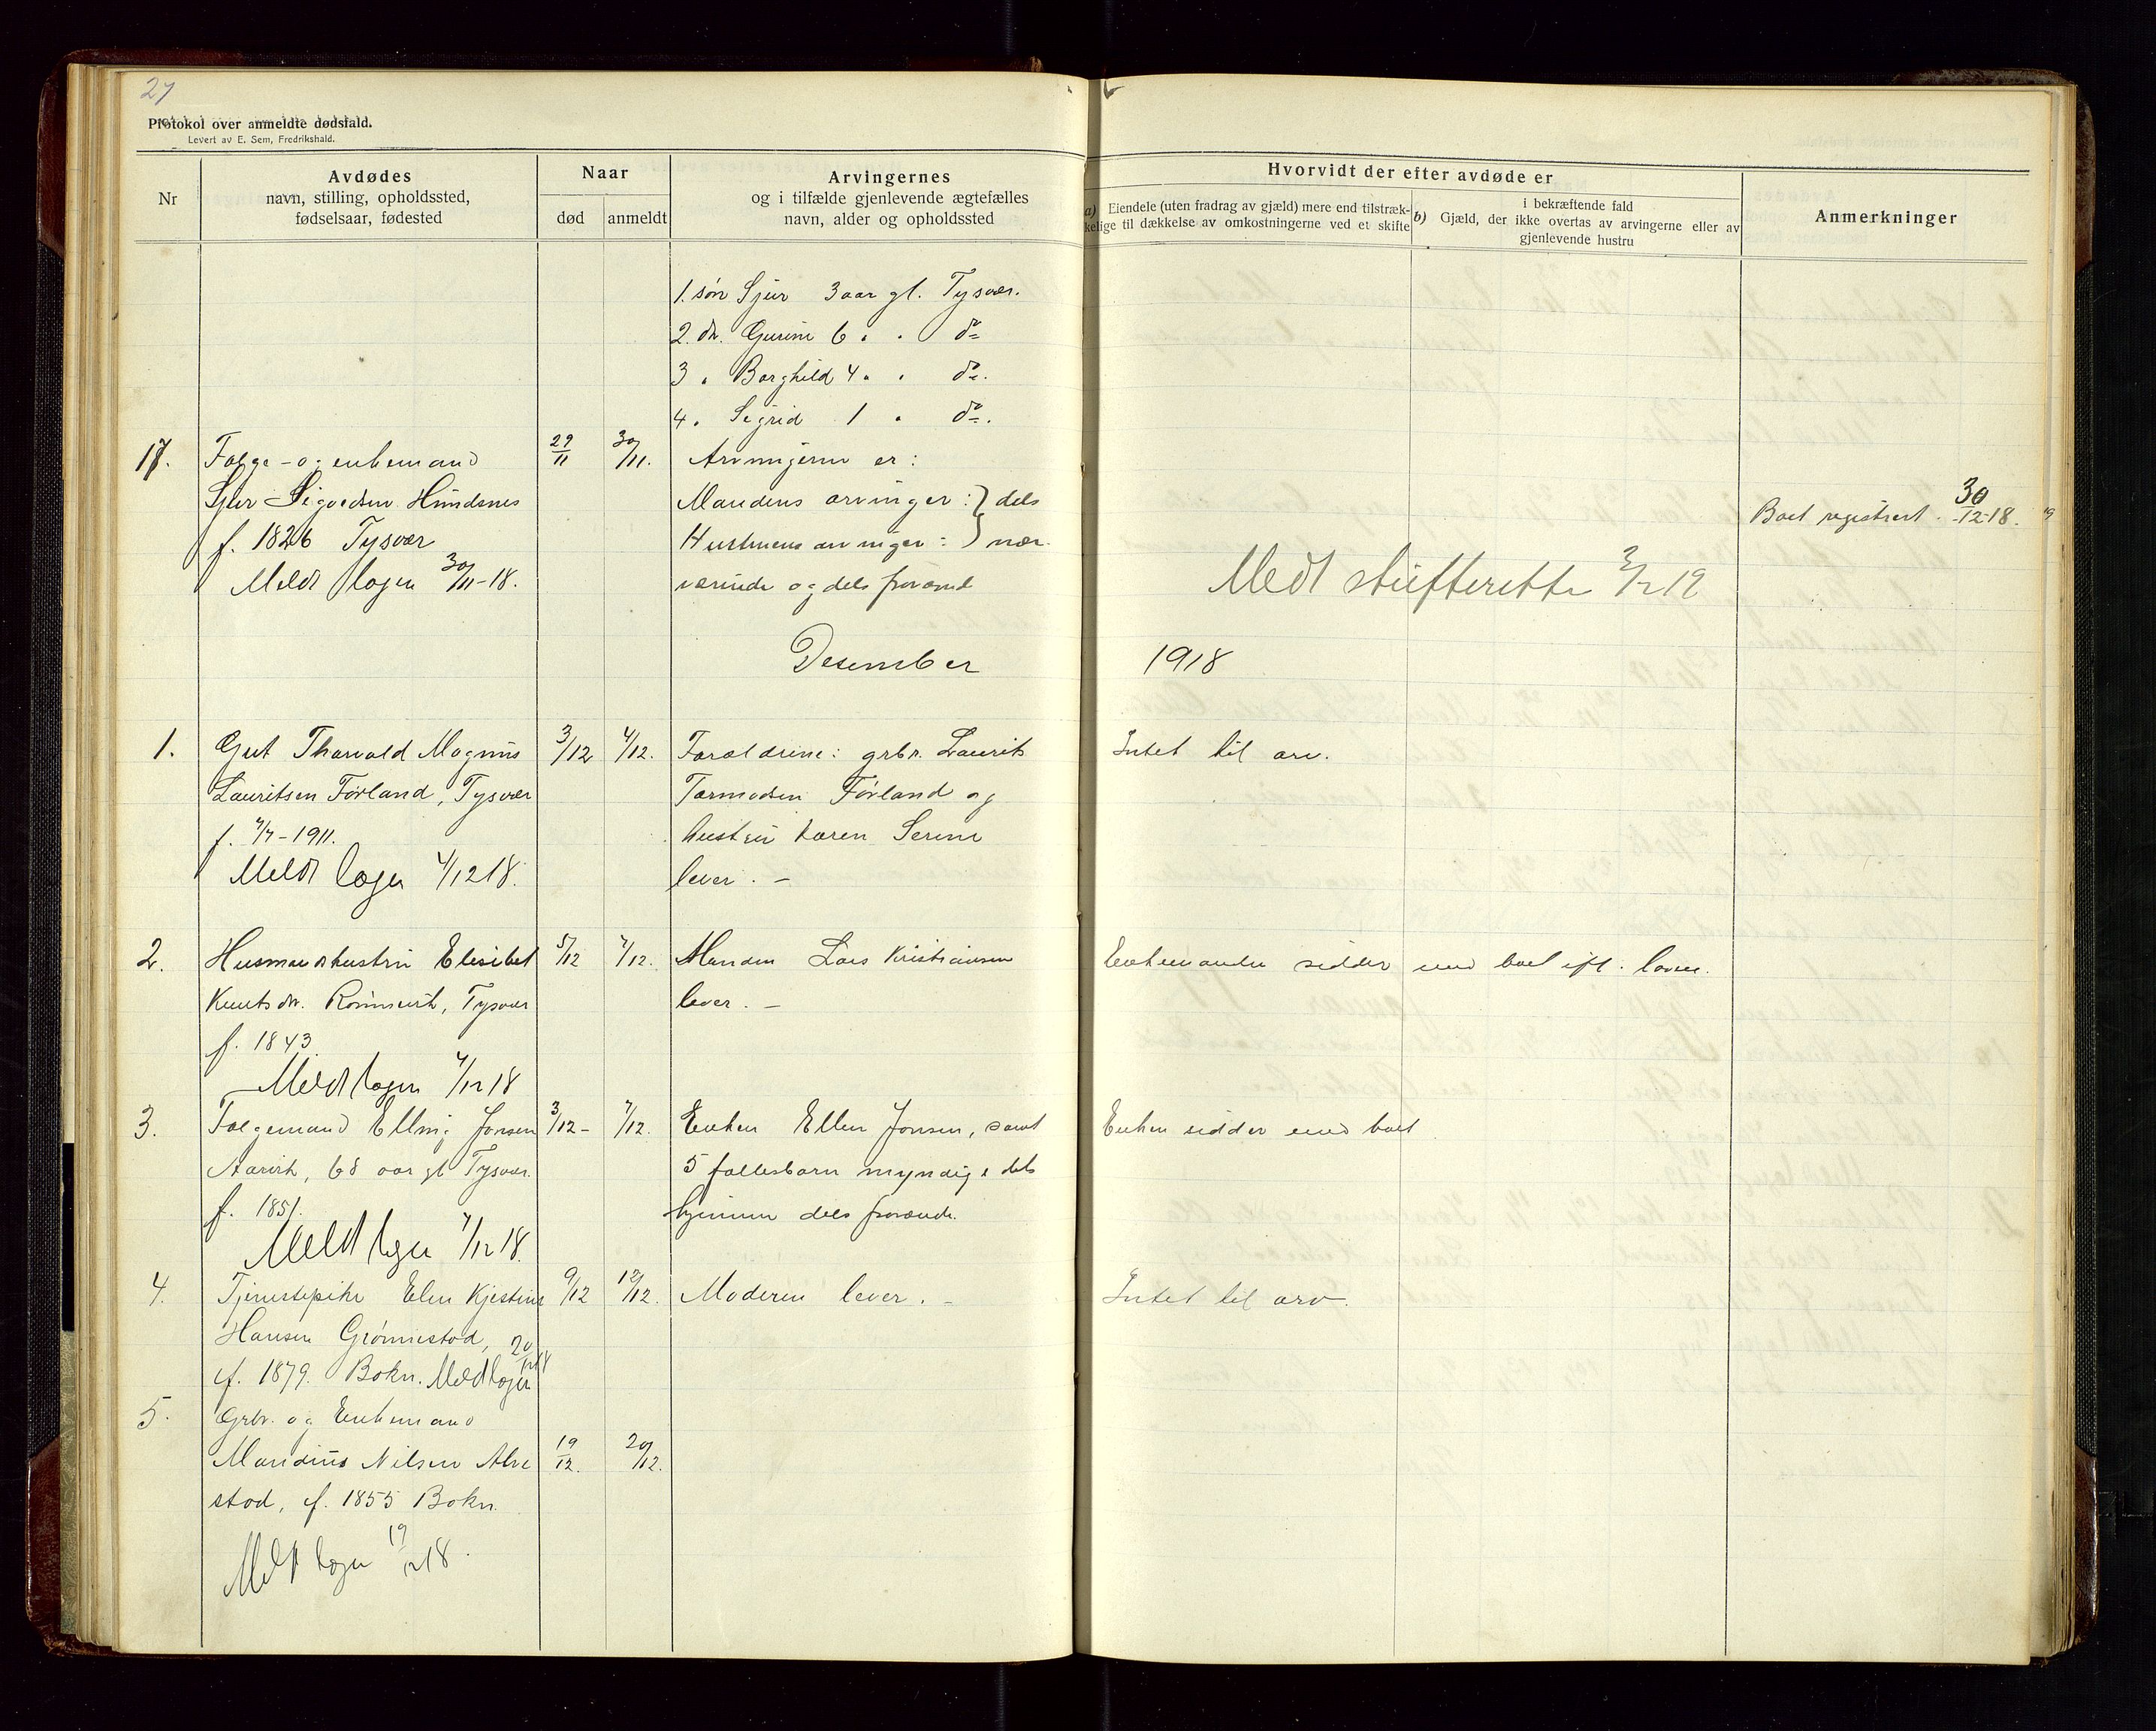 27
Protokol over anmeldte dødsfald.
Levert av E. Sem, Fredrikshald.
Nr
Avdødes
navn, stilling, opholdssted,
fødselsaar, fødested
Naar
død
anmeldt
Arvingernes
og i tilfælde gjenlevende ægtefælles
navn, alder og opholdssted
Hvorvidt der efter avdøde er
a) Eiendele (uten fradrag av gjæld) mere end tilstræk-
kelige til dækkelse av omkostningerne ved et skifte
b) Gjæld, der i bekræftende fald
ikke overtas av arvingerne eller av
gjenlevende hustru
Anmerkninger
1. søn Sjur 3 aar gl. Tysvær.
2. dr. Gurine 6 " " do
3 " Borghild 4 " " do.
4 " Sigrid 1 " do.
17. Folge- og enkemand 29/11 30/11. Arvingerne er:
Sjur Sigvedsen Hindsnes Mandens arvinger: } dels
f. 1826 Tysvær Hustruens arvinger: } nær-
Meldt lagen 30/11-18. værende og dels fraværende
Boet registrert 30/12-18.
Medt skifteretten 3/2 19
Desember 1918
1. Gut Thorvald Magnus 3/12 4/12. Forældrene: grbr. Laurits Intet til arv.
Lauritsen Førland, Tysvær Tormodsen Førland og
f. 7/7-1911. hustru Karen Serine
Meldt lagen 4/12 18. lever. –
2. Husmandshustru Elisibet 5/12 7/12. Manden Lars Kristiansen Enkemanden sidder med boet ifl. loven.
Knutsdr. Tysvær lever. –
f. 1843
Meldt lagen 7/12 18
3. Folgemand Elling Jonsen 3/12- 7/12. Enken Ellen Jonsen, samt Enken sidder med boet
Aarvik, 68 aar gl Tysvær. 5 fællesbarn myndige dels
f. 1851. hjemme dels fraværende.
Meldt lagen 7/12 18.
4. Tjenestepike Elen Kjestine 9/12 12/12. Moderen lever. – Intet til arv.
Hansen Grønnestad,
f. 1879. Bokn. Meldt lagen 20/12 18
5. Grbr. og Enkemand
Mandius Nilsen Alve 19/12. 20/12.
stad, f. 1855 Bokn.
Meldt lagen 19/12 18.